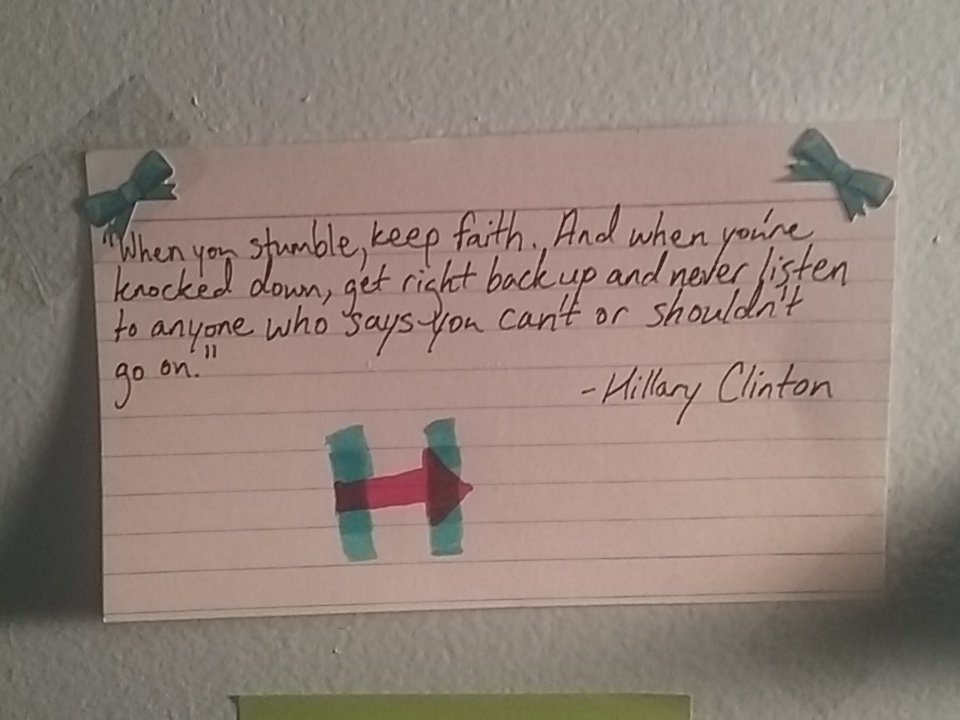 "When you stumble, keep faith. And when you're
knocked down, get right back up and never listen
to anyone who says you can't or shouldn't
go on."
-Hillary Clinton
H